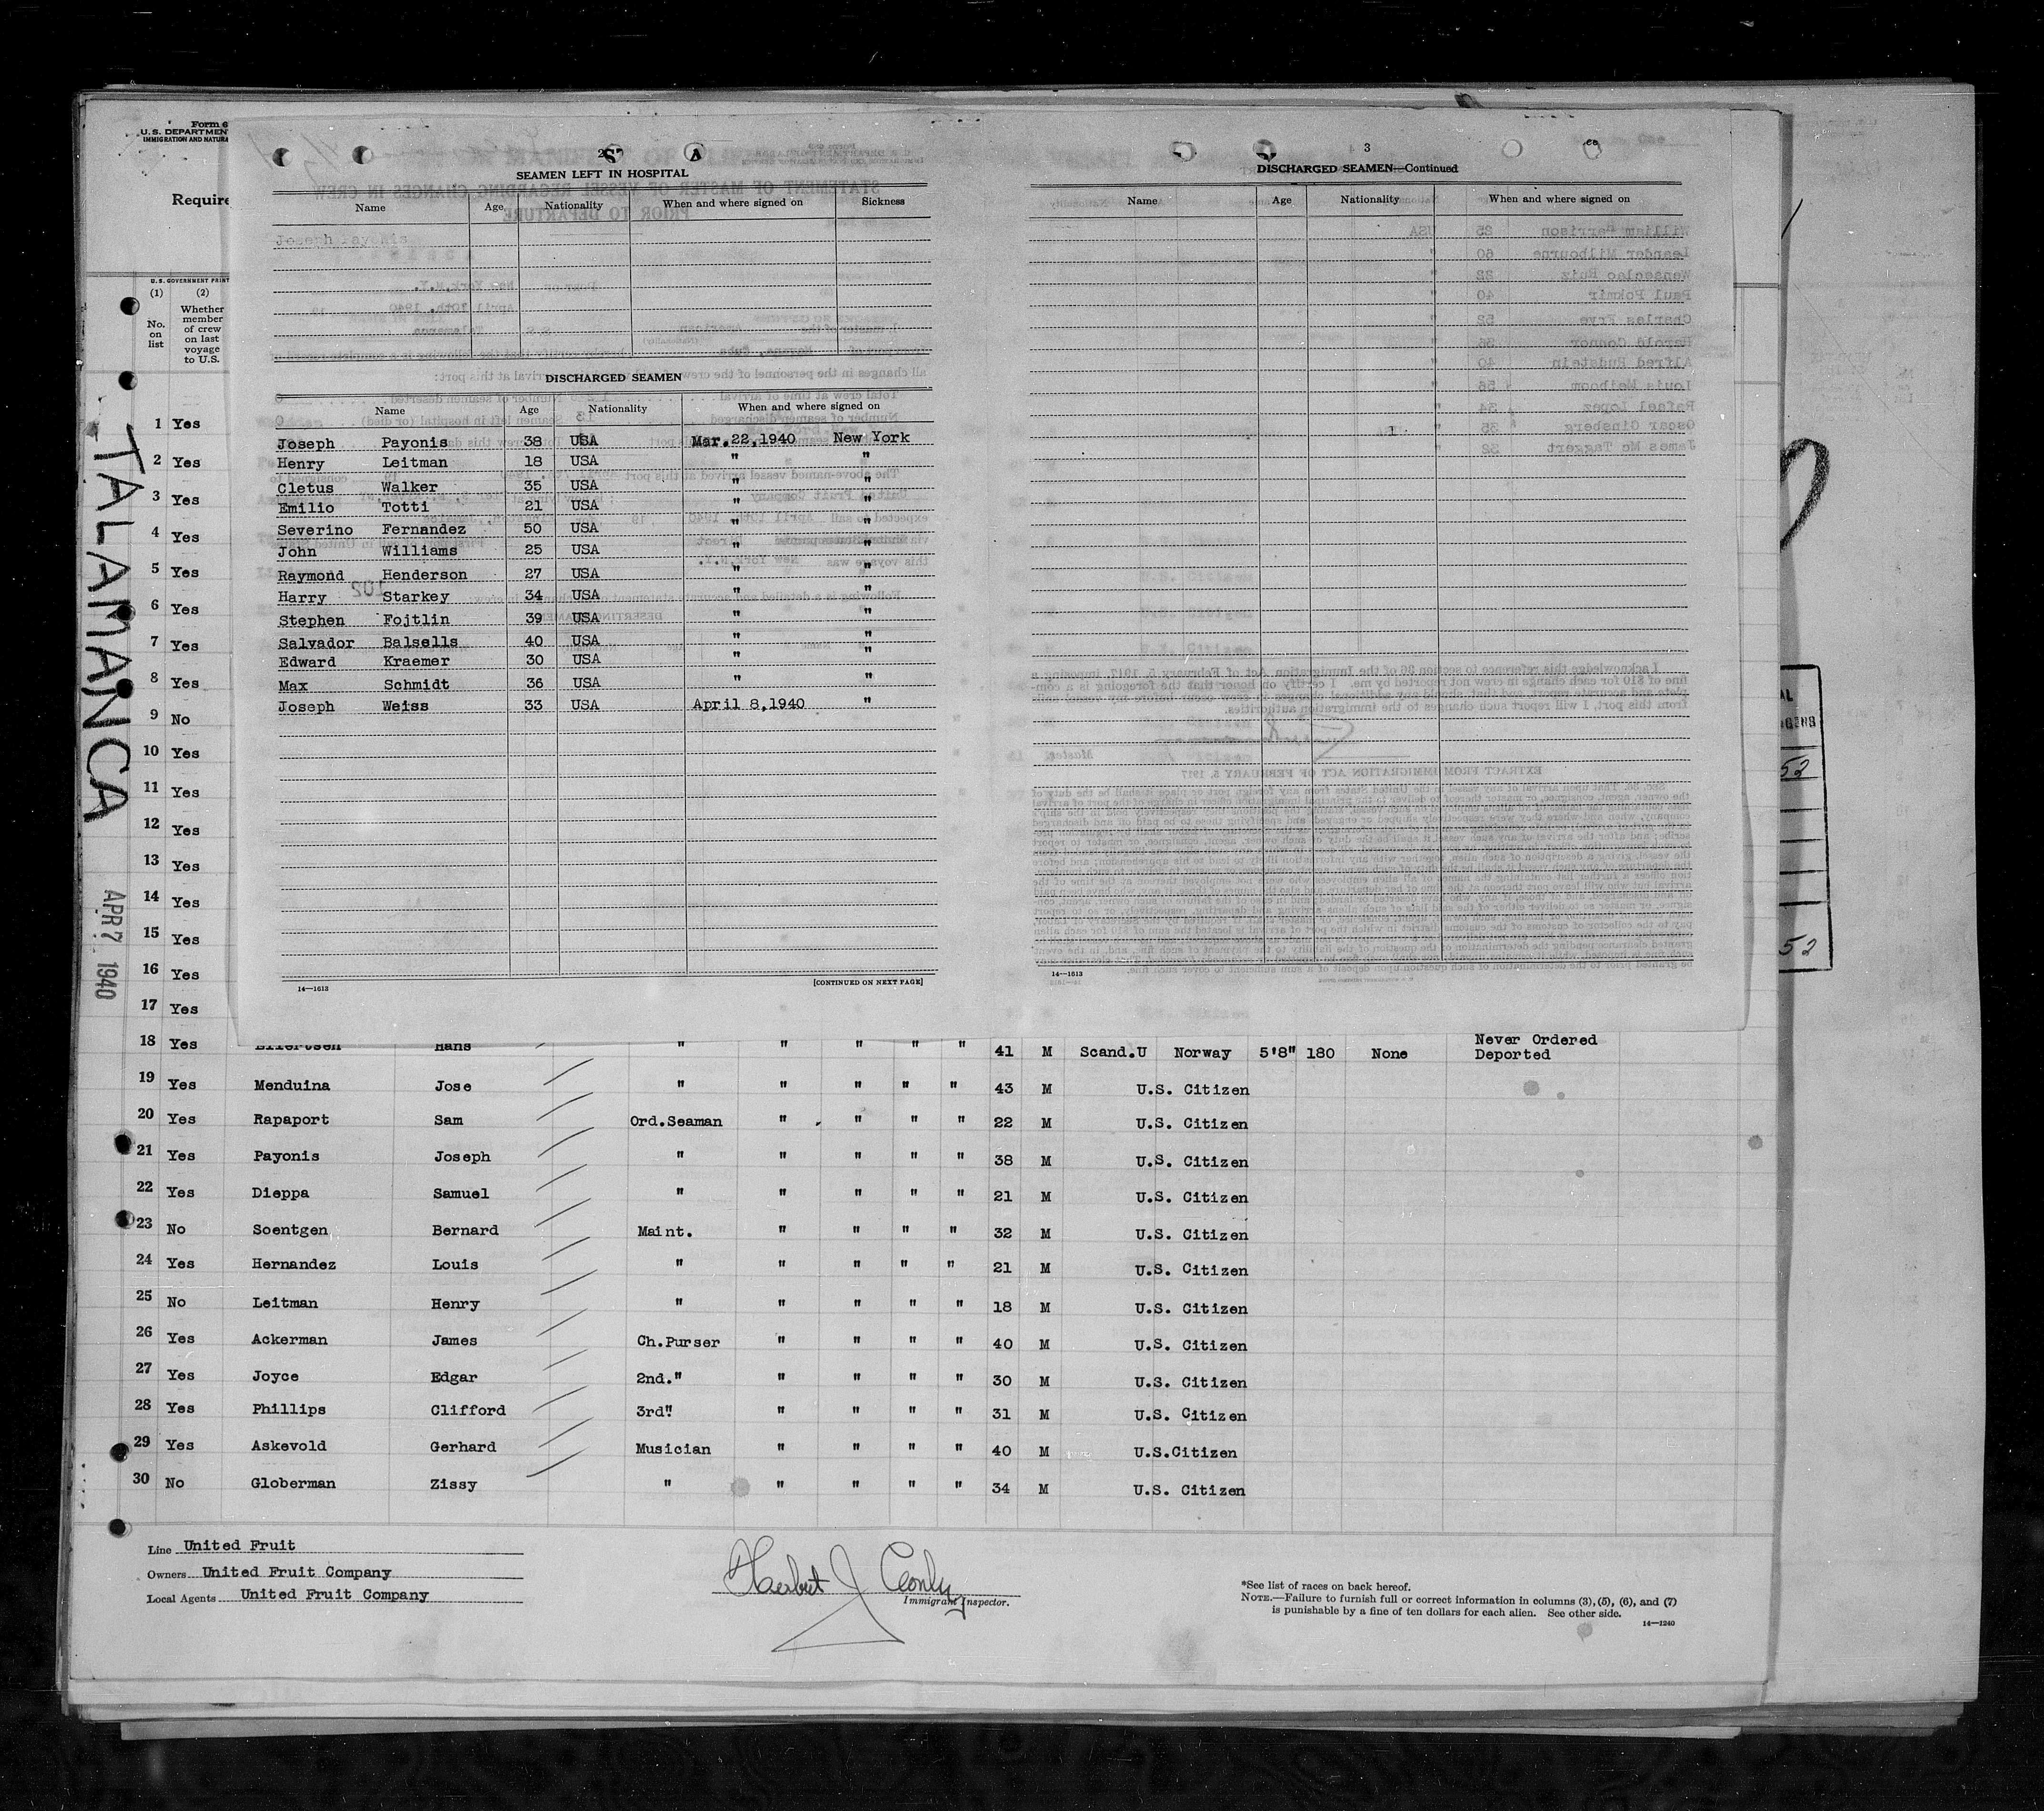 Form 6
U.S. DEPARTMEN
IMMIGRATION AND NATURA
Require
U.S. GOVERNMENT PRINT
(1) (2)
No. on list
Whether member of crew on last voyage to U.S.
TALAMANCA
APR 7 1940
2
SEAMEN LEFT IN HOSPITAL
Name Age Nationality When and where signed on Sickness
Joseph Payonis
DISCHARGED SEAMEN
Name Age Nationality When and where signed on
Joseph Payonis 38 USA Mar.22,1940 New York
Henry Leitman 18 USA " "
Cletus Walker 35 USA " "
Emilio Totti 21 USA " "
Severino Fernandez 50 USA " "
John Williams 25 USA " "
Raymond Henderson 27 USA " "
Harry Starkey 34 USA " "
Stephen Fojtlin 39 USA " "
Salvador Balsells 40 USA " "
Edward Kraemer 30 USA " "
Max Schmidt 36 USA " "
Joseph Weiss 33 USA April 8,1940 "
14—1613 [CONTINUED ON NEXT PAGE]
3
DISCHARGED SEAMEN—Continued
Name Age Nationality When and where signed on
14—1613
52
52
1 Yes
2 Yes
3 Yes
4 Yes
5 Yes
6 Yes
7 Yes
8 Yes
9 No
10 Yes
11 Yes
12 Yes
13 Yes
14 Yes
15 Yes
16 Yes
17 Yes
18 Yes Eilertsen Hans " " " " " 41 M Scand.U Norway 5'8" 180 None Never Ordered Deported
19 Yes Menduina Jose " " " " " 43 M U.S. Citizen
20 Yes Rapaport Sam Ord.Seaman " " " " 22 M U.S. Citizen
21 Yes Payonis Joseph " " " " " 38 M U.S. Citizen
22 Yes Dieppa Samuel " " " " " 21 M U.S. Citizen
23 No Soentgen Bernard Maint. " " " " 32 M U.S. Citizen
24 Yes Hernandez Louis " " " " " 21 M U.S. Citizen
25 No Leitman Henry " " " " " 18 M U.S. Citizen
26 Yes Ackerman James Ch.Purser " " " " 40 M U.S. Citizen
27 Yes Joyce Edgar 2nd." " " " " 30 M U.S. Citizen
28 Yes Phillips Clifford 3rd" " " " " 31 M U.S. Citizen
29 Yes Askevold Gerhard Musician " " " " 40 M U.S.Citizen
30 No Globerman Zissy " " " " " 34 M U.S. Citizen
Line United Fruit
Owners United Fruit Company
Local Agents United Fruit Company
Herbert J Conly
Immigrant Inspector.
*See list of races on back hereof.
NOTE.—Failure to furnish full or correct information in columns (3), (5), (6), and (7)
is punishable by a fine of ten dollars for each alien. See other side.
14—1240